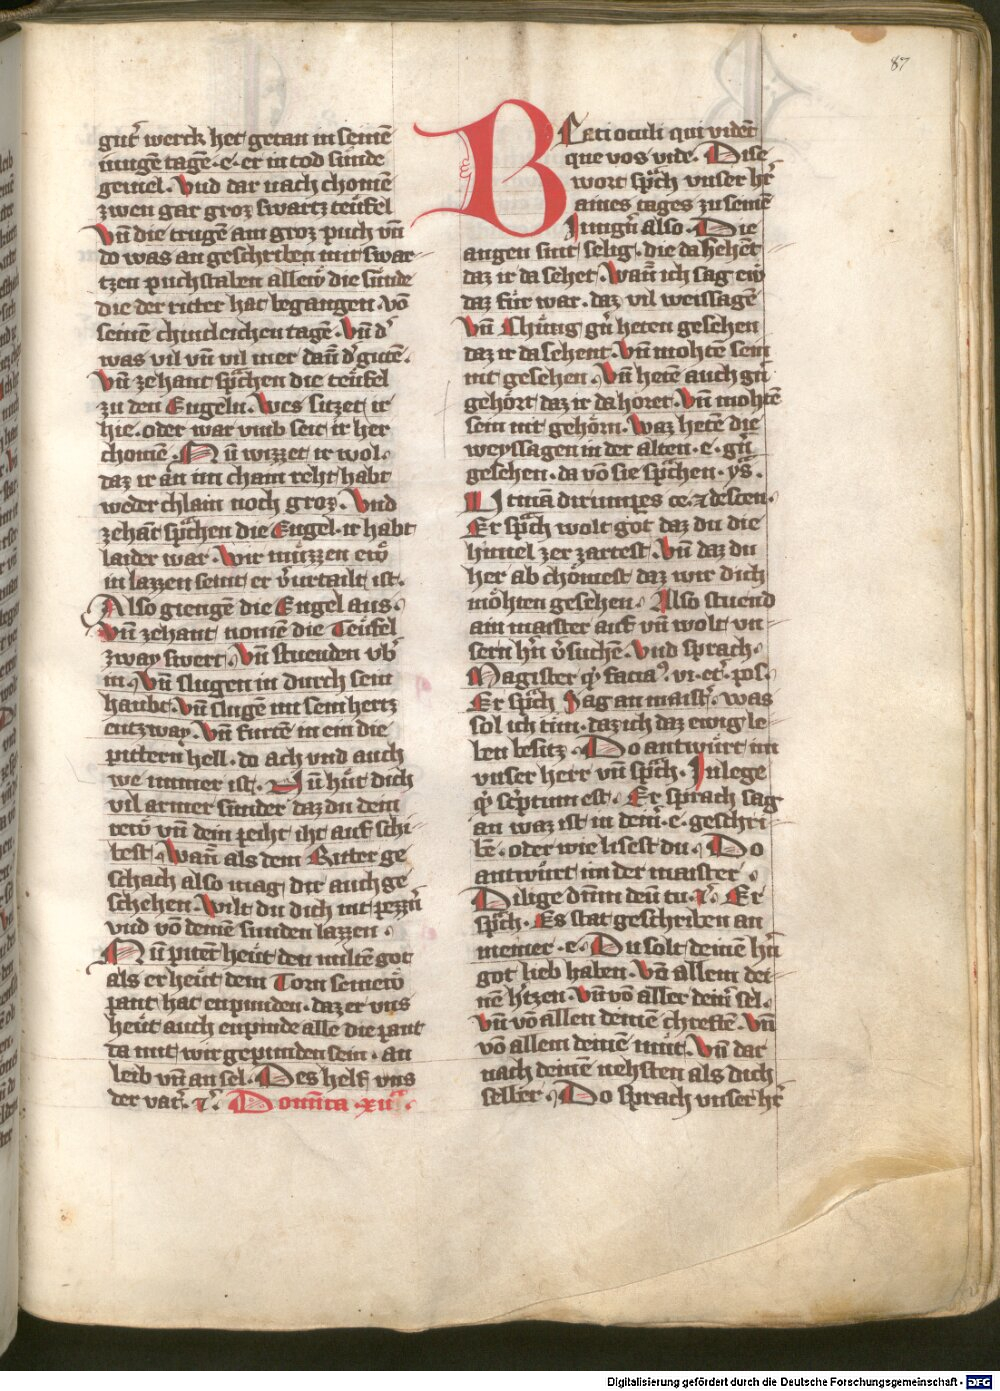 87
gut̾ werck het getan in seinē
iungē tagē · e · er in tod sünde
geuiel · Vnd dar nach chomē
zwen gar groz swartz teüfel
Vn̄ die trugē ain groz puch vn̄
do was an geschriben mit swar-
tzen puchstaben allew̄ die sünde
die der ritter hat begangen · vō
seinē chintleichen tagē · Vn̄ d̾
was vil vn̄ vil mer dan̄ d̾ gutē ·
Vn̄ zehant sp̾chen die teüfel
zu den Engeln · Wes sitzet ir
hie · oder war vmb seit ir her
chomē · Nu wizzet ir wol
daz ir an im chain reht habt
weder chlain noch groz · Vnd
zehāt sp̾chen die Engel · ir habt
laider war · Wir müzzen ew̄
in lazzen seint er v̾urtailt ist ·
Also giengē die Engel aus ·
Vn̄ zehant nomē die Teüfel
zway swert · Vn̄ stuenden vb̾
in · Vn̄ slugen in durch sein
haubt · Vn̄ slugē im sein hertz
entzway · Vn̄ furtē in ein die
pittern hell · do ach vnd auch
we immer ist · Nu hüt dich
vil armer sünder daz du dein
rew̄ vn̄ dein peicht iht auf schi-
best · Wan̄ als dem Ritter ge
schach also mag dir auch ge
schehen · Wilt du dich nit pezz̾n
vnd vō deinē sunden lazzen ·
Nu pitent heüt den miltē got
als er heüt dem Torn seinew̄
pant hat enpunden · daz er vns
heüt auch enpinde alle die pant
da mit wir gepunden sein · an
leib vn̄ an sel · Des helf vns
der vat̾ · ⁊c̾ · Domīca · xiiᵃ ·
Beati oculi qui vidēt
que vos vidē · Dise
wort sp̾ch vnser h̾r
aines tages zu seinē
Jung̾n also · Die
augen sint selig · die da sehēt
daz ir da sehet · Wan̄ ich sag ew̄
daz für war · daz vil weissagē
vn̄ Chünig g̾n heten gesehen
daz ir da sehent · Vn̄ mohtē sein
nit gesehen · Vn̄ hetē auch g̾n
gehört daz ir da horet · Vn̄ mohtē
sein nit gehörn · Waz hetē die
weyssagen in der alten · e · g̾n
gesehen · da vō sie sp̾chen · ys̄ ·
Utinā dirumpes ce · ⁊ descen ·
Er sp̾ch wolt got daz du die
himel zer zartest · Vn̄ daz du
her ab chömest daz wir dich
möhten gesehen · Also stuend
ain maister auf vn̄ wolt vn-
sern h̾n v̾suchē · Vnd sprach ·
Magister q̾ faciā · vi · et̾ · pos ·
Er sp̾ch Sag an maist̾ · was
sol ich tun · daz ich daz ewig le-
ben besitz · Do antwürt im
vnser herr vn̄ sp̾ch · In lege
q̾ sc̾ptum est · Er sprach sag
an waz ist in dein̾ · e · geschri-
bē · oder wie lisest du · Do
antwürt im der maister ·
Dilige dn̄m deū tu · ⁊c̾ · Er
sp̾ch · Es stat geschriben an
meiner · e · Du solt deinē h̾n
got lieb haben · Vō allem dei-
nē h̾tzen · Vn̄ vō aller dein̾ sel ·
Vn̄ vō allen deinē chreftē · Vn̄
vō allem deinē mut · Vn̄ dar
nach deinē nehsten als dich
selber · Do sprach vnser h̾r
Digitalisierung gefördert durch die Deutsche Forschungsgemeinschaft - DFG